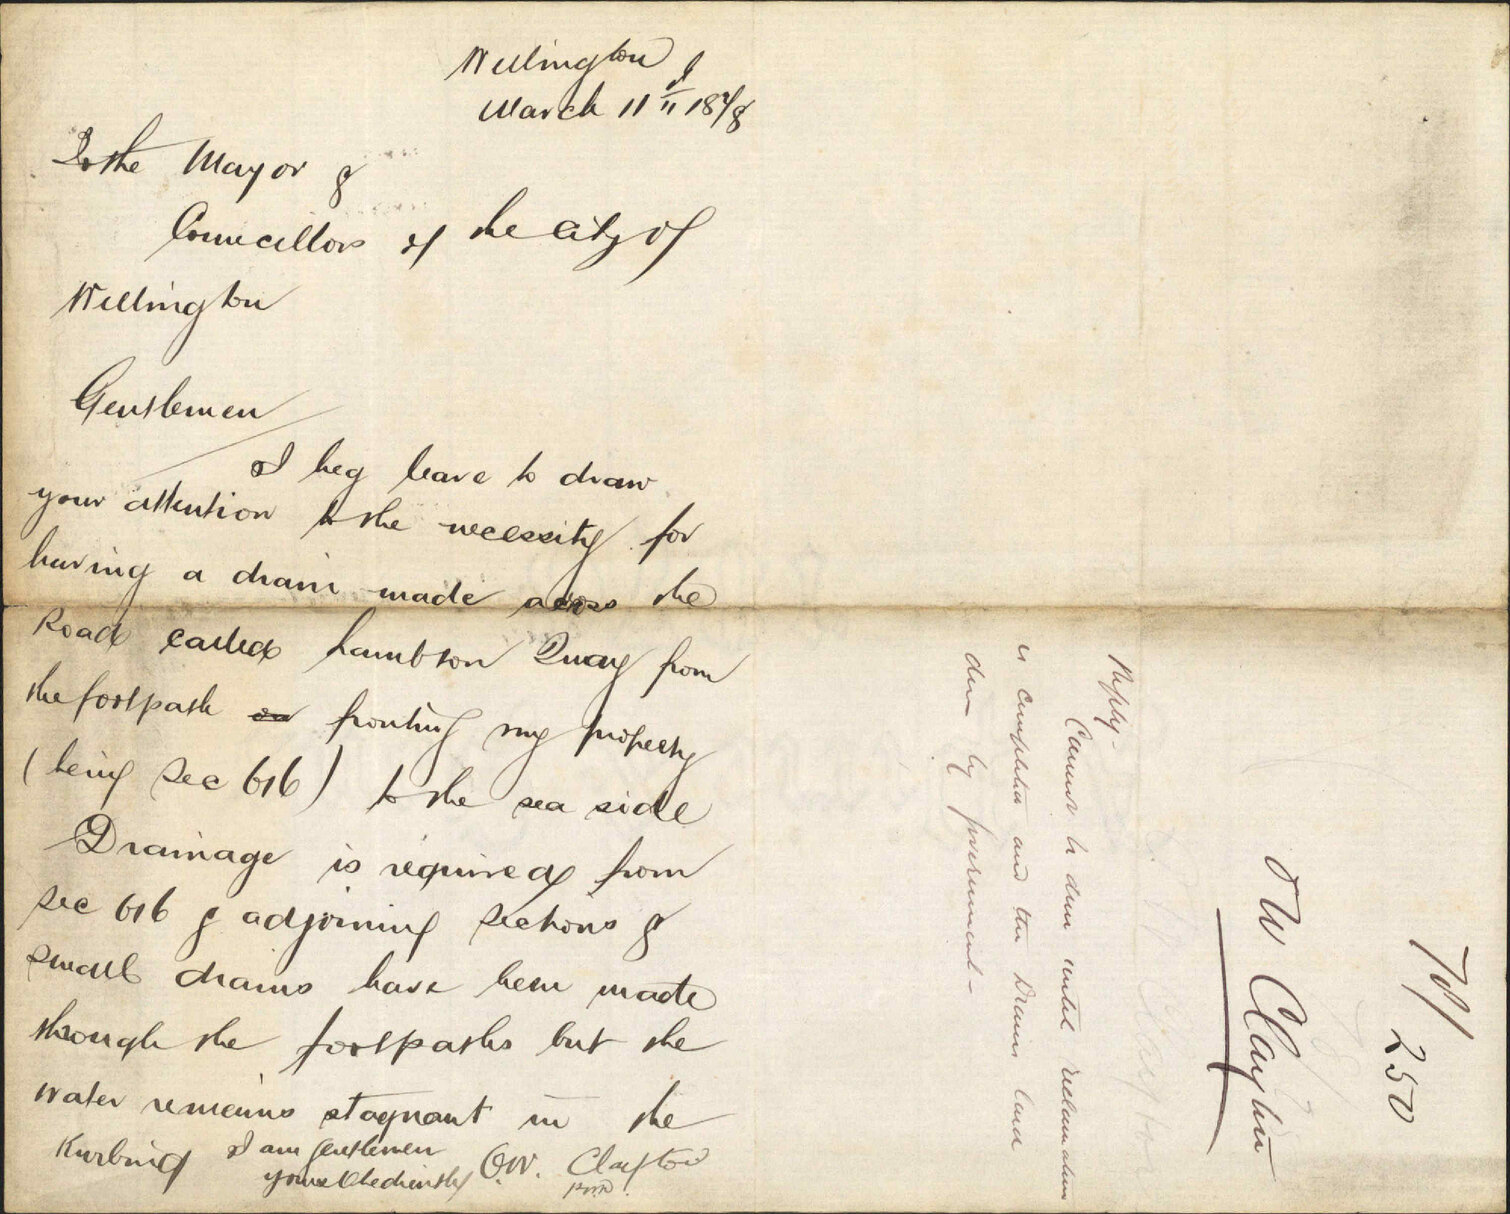 Wellington
March 11th 1878
To the Mayor &
Councillors of the City of
Wellington
Gentlemen
I beg leave to draw
your attention to the necessity for
having a drain made across the
Road called Lambton Quay from
the footpath on fronting my property
(being Sec 616) to the sea side
Drainage is required from
Sec 616 & adjoining sections &
small drains have been made
through the footpaths but the
water remains stagnant in the
Kurbing I am Gentlemen
yours Obediently O.W. Clayton
Reply -
Cannot be done until reclamation
is completed and the Drains laid
down by government -
O W Clayton
78/250